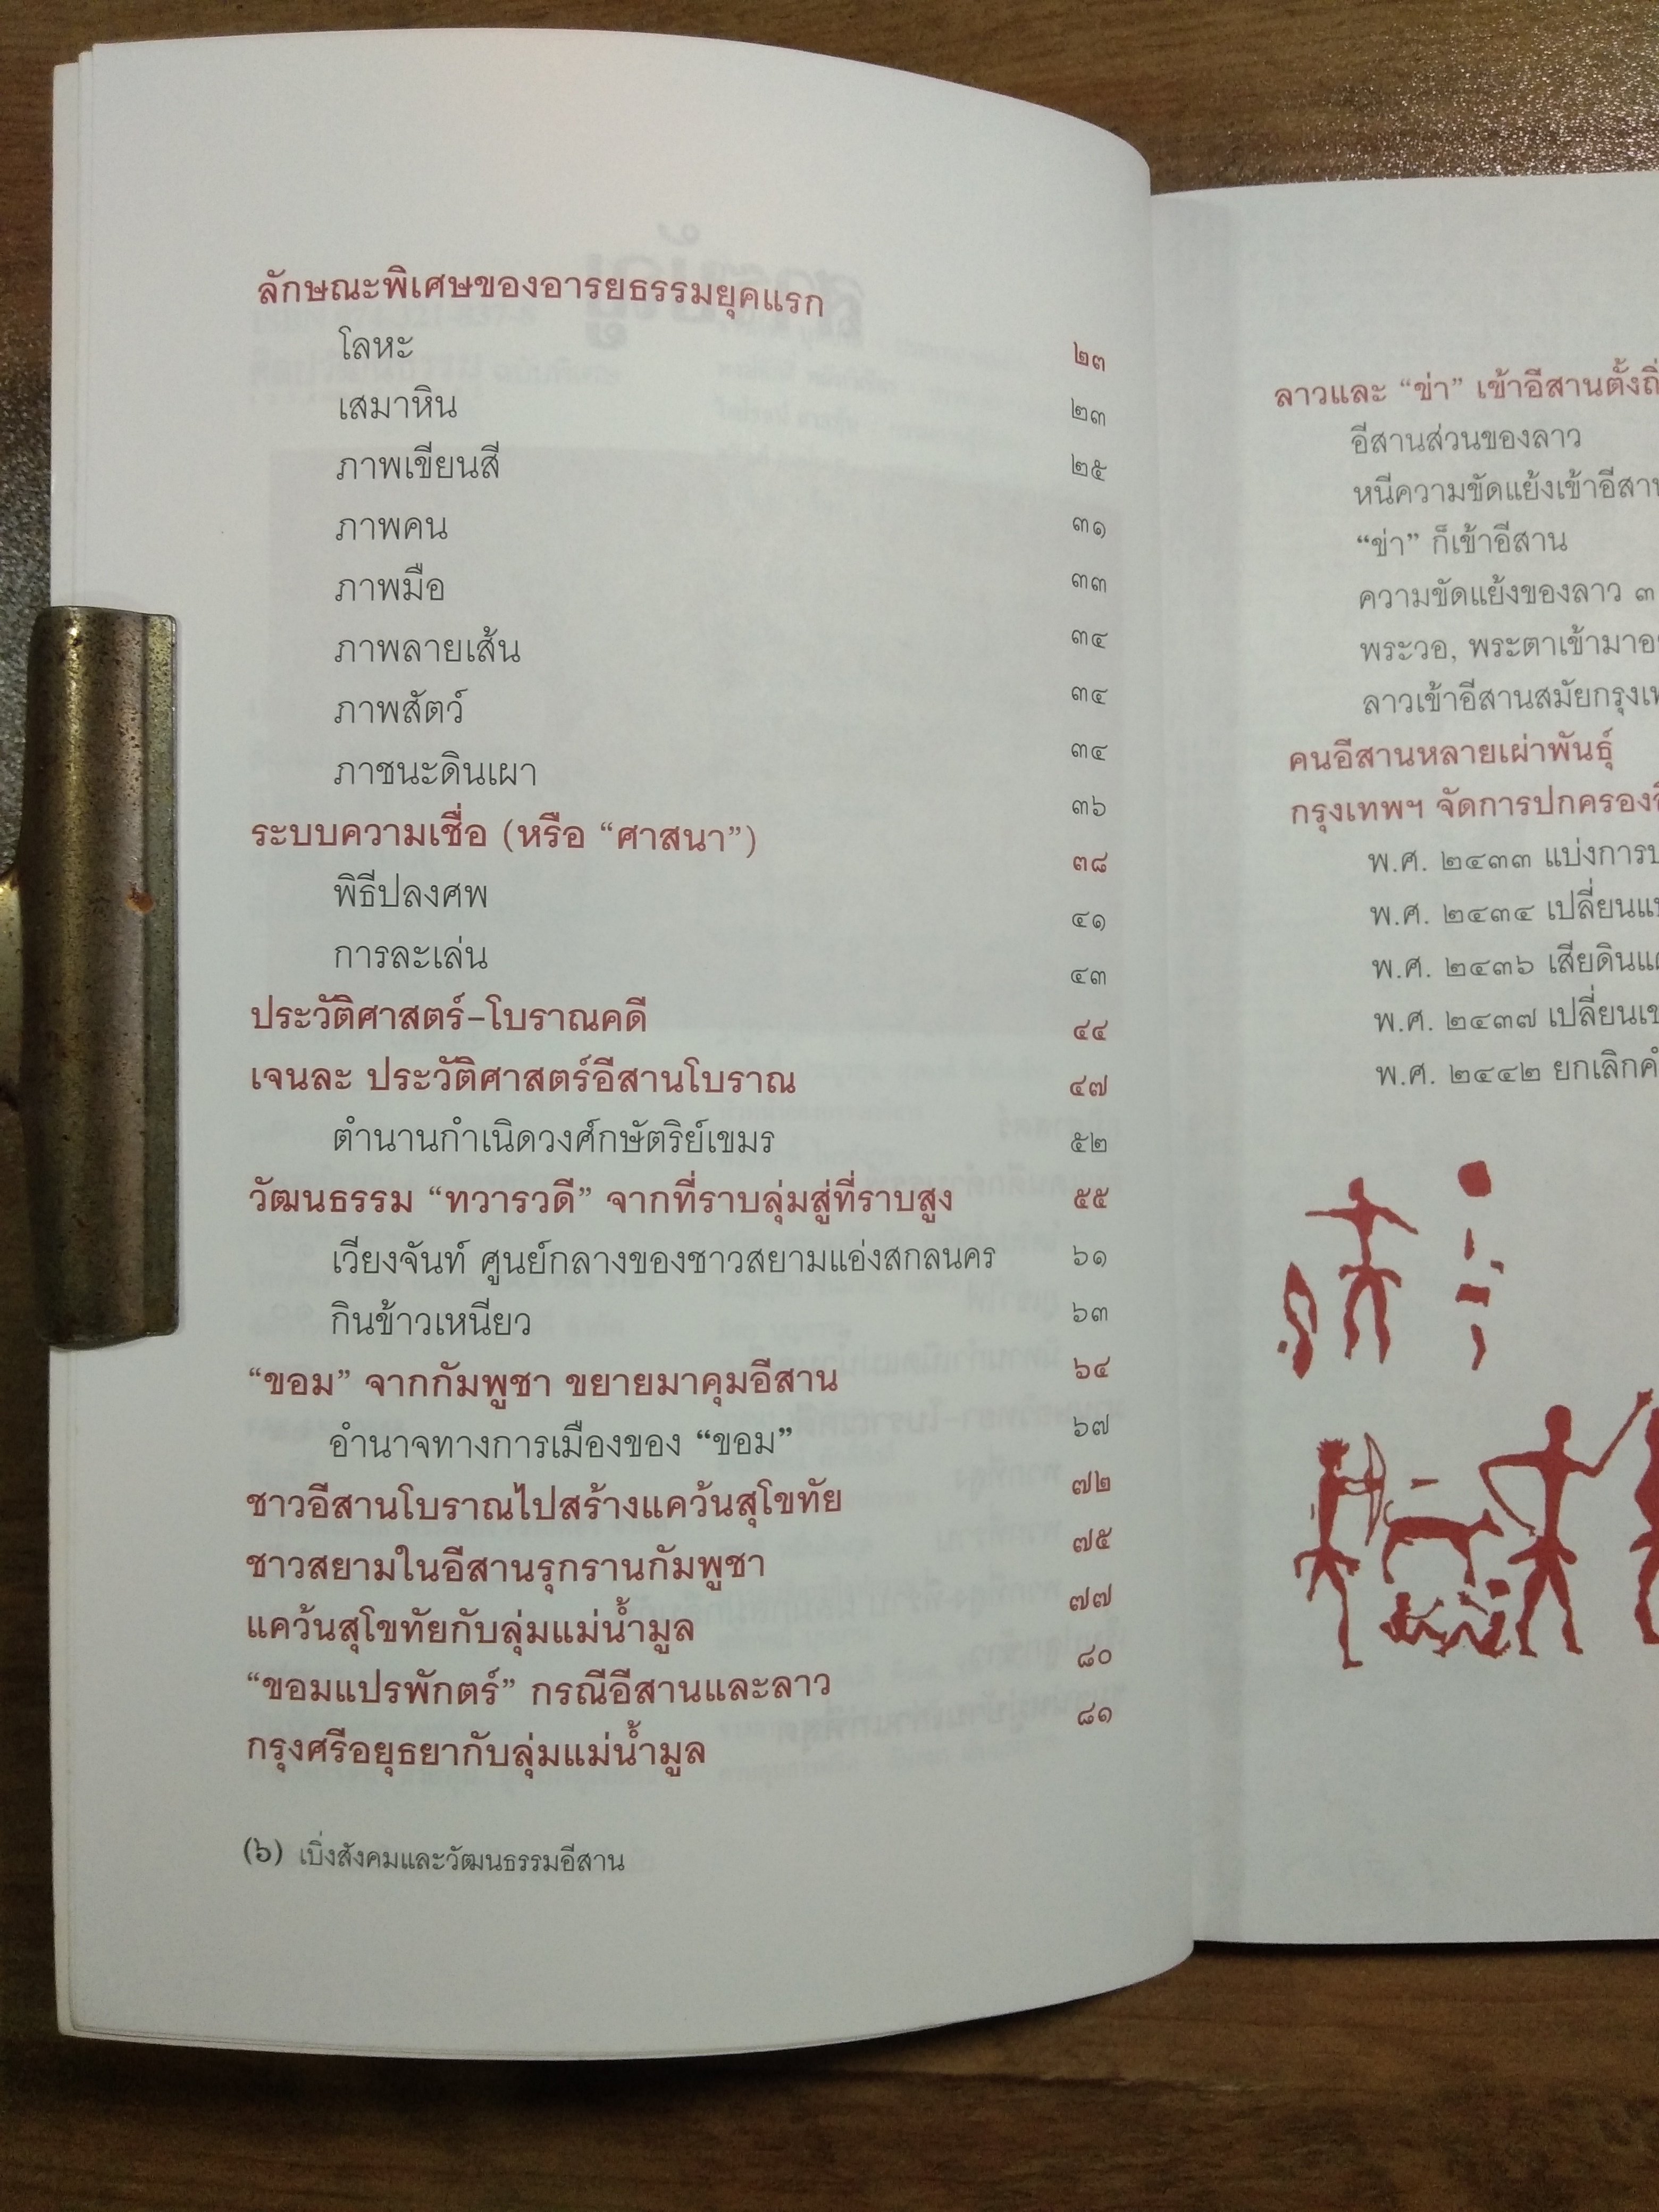 ลักษณะพิเศษของอารยธรรมยุคแรก ๒๓
โลหะ ๒๓
เสมาหิน ๒๕
ภาพเขียนสี ๓๑
ภาพคน ๓๓
ภาพมือ ๓๔
ภาพลายเส้น ๓๔
ภาพสัตว์ ๓๔
ภาชนะดินเผา ๓๖
ระบบความเชื่อ (หรือ “ศาสนา”) ๓๘
พิธีปลงศพ ๔๑
การละเล่น ๔๓
ประวัติศาสตร์–โบราณคดี ๔๔
เจนละ ประวัติศาสตร์อีสานโบราณ ๔๗
ตำนานกำเนิดวงศ์กษัตริย์เขมร ๕๒
วัฒนธรรม “ทวารวดี” จากที่ราบลุ่มสู่ที่ราบสูง ๕๕
เวียงจันท์ ศูนย์กลางของชาวสยามแอ่งสกลนคร ๖๑
กินข้าวเหนียว ๖๓
“ขอม” จากกัมพูชา ขยายมาคุมอีสาน ๖๔
อำนาจทางการเมืองของ “ขอม” ๖๗
ชาวอีสานโบราณไปสร้างแคว้นสุโขทัย ๗๒
ชาวสยามในอีสานรุกรานกัมพูชา ๗๕
แคว้นสุโขทัยกับลุ่มแม่น้ำมูล ๗๗
“ขอมแปรพักตร์” กรณีอีสานและลาว ๘๐
กรุงศรีอยุธยากับลุ่มแม่น้ำมูล ๘๑
(๖) เบิ่งสังคมและวัฒนธรรมอีสาน
ลาวและ “ข่า” เข้าอีสานตั้งถิ่
อีสานส่วนของลาว
หนีความขัดแย้งเข้าอีสาน
“ข่า” ก็เข้าอีสาน
ความขัดแย้งของลาว ๓
พระวอ, พระตาเข้ามา
ลาวเข้าอีสานสมัยกรุงเท
คนอีสานหลายเผ่าพันธุ์
กรุงเทพฯ จัดการปกครอง
พ.ศ. ๒๔๓๓ แบ่งการ
พ.ศ. ๒๔๓๔ เปลี่ยน
พ.ศ. ๒๔๓๖ เสียดิน
พ.ศ. ๒๔๓๗ เปลี่ยน
พ.ศ. ๒๔๔๒ ยกเลิก